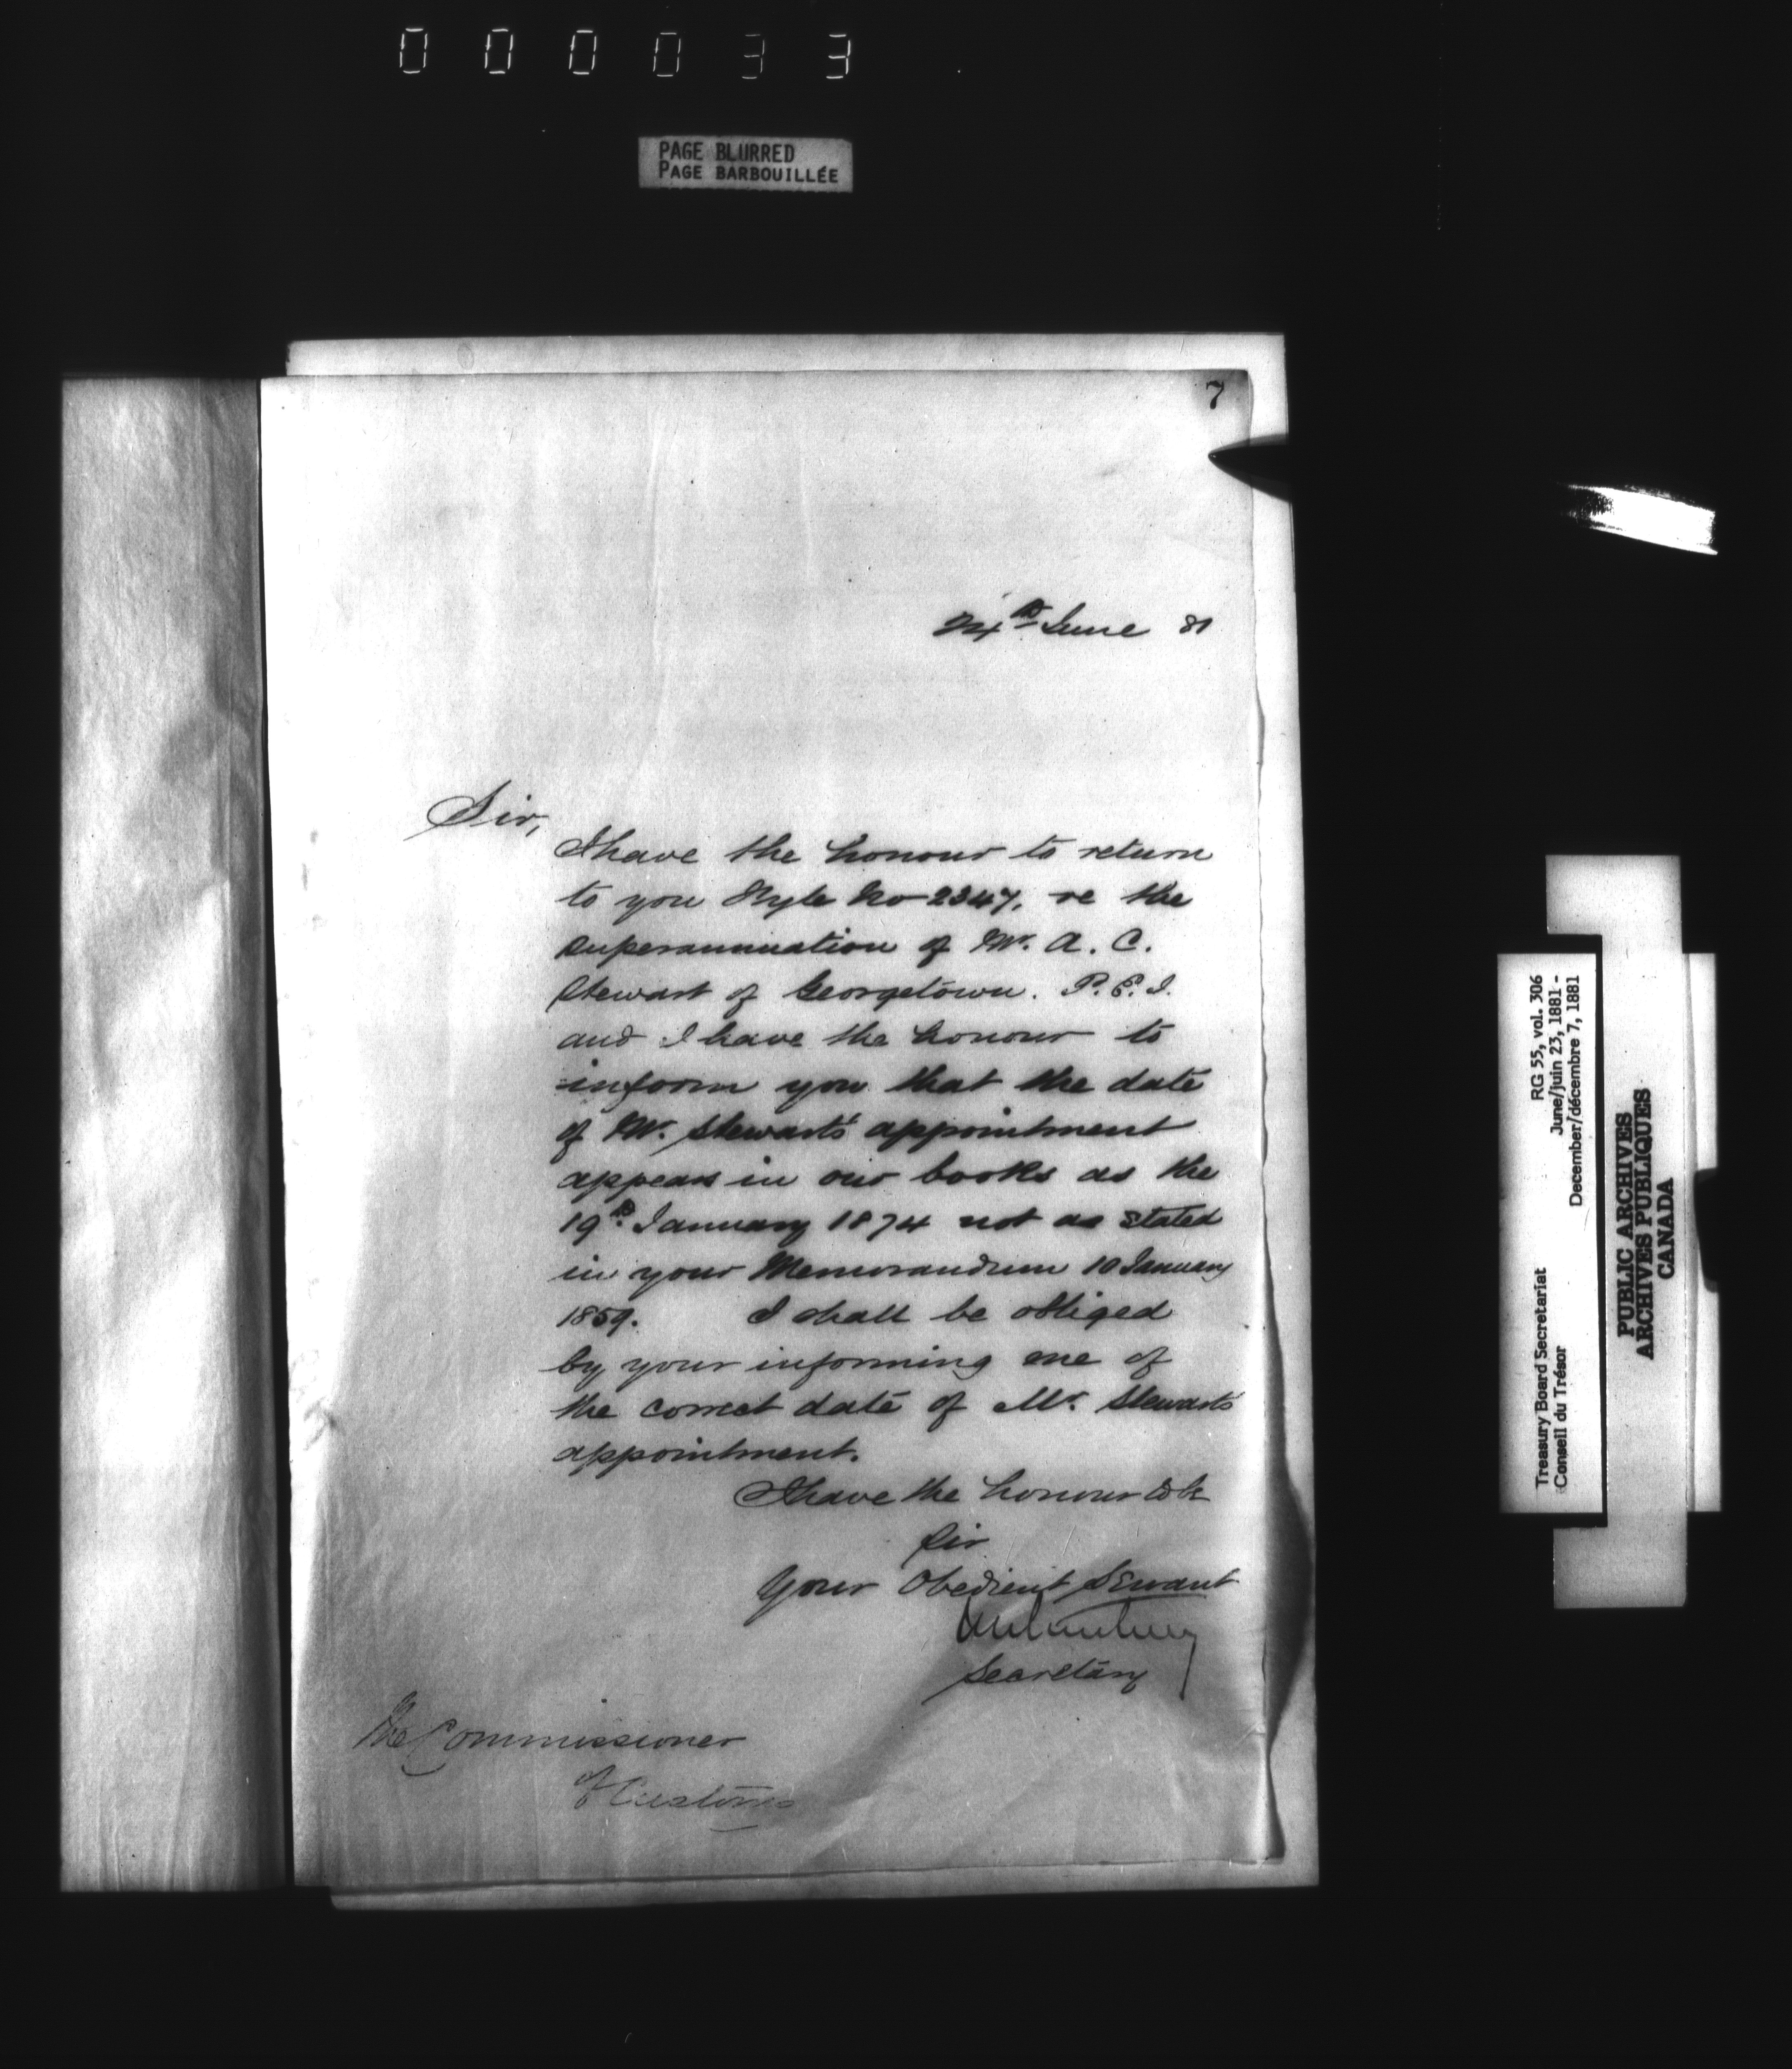 000033
PAGE BLURRED
PAGE BARBOUILLÉE
7
24th June 81
Sir,
I have the honour to return
to you Style No 2347, re the
superannuation of Mr. A. C.
Stewart of Georgetown. P.E.I.
and I have the honour to
inform you that the date
of Mr. Stewart's appointment
appears in our books as the
19th January 1874 not as stated
in your Memorandum 10 January
1859. I shall be obliged
by your informing me of
the correct date of Mr. Stewart's
appointment.
I have the honour to be
Sir
Your Obedient Servant
Secretary
The Commissioner
of Customs
Treasury Board Secretariat RG 55, vol. 306
Conseil du Trésor June/juin 23, 1881 -
December/décembre 7, 1881
PUBLIC ARCHIVES
ARCHIVES PUBLIQUES
CANADA